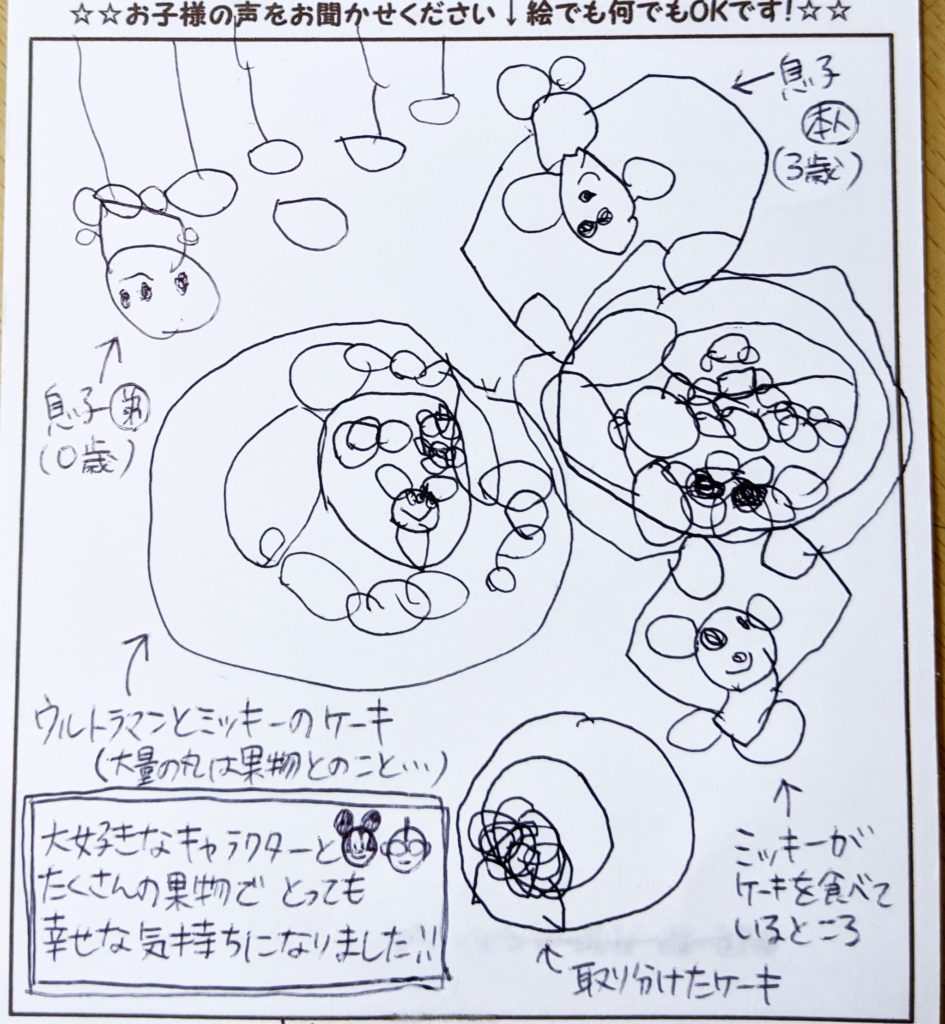 ☆☆お子様の声をお聞かせください↓絵でも何でもOKです!☆☆
←息子
本人
(3歳)
息子弟
(0歳)
ウルトラマンとミッキーのケーキ
(大量の丸は果物とのこと…)
大好きなキャラクターと
たくさんの果物で とっても
幸せな気持ちになりました!!
ミッキーが
ケーキを食べて
いるところ
取り分けたケーキ